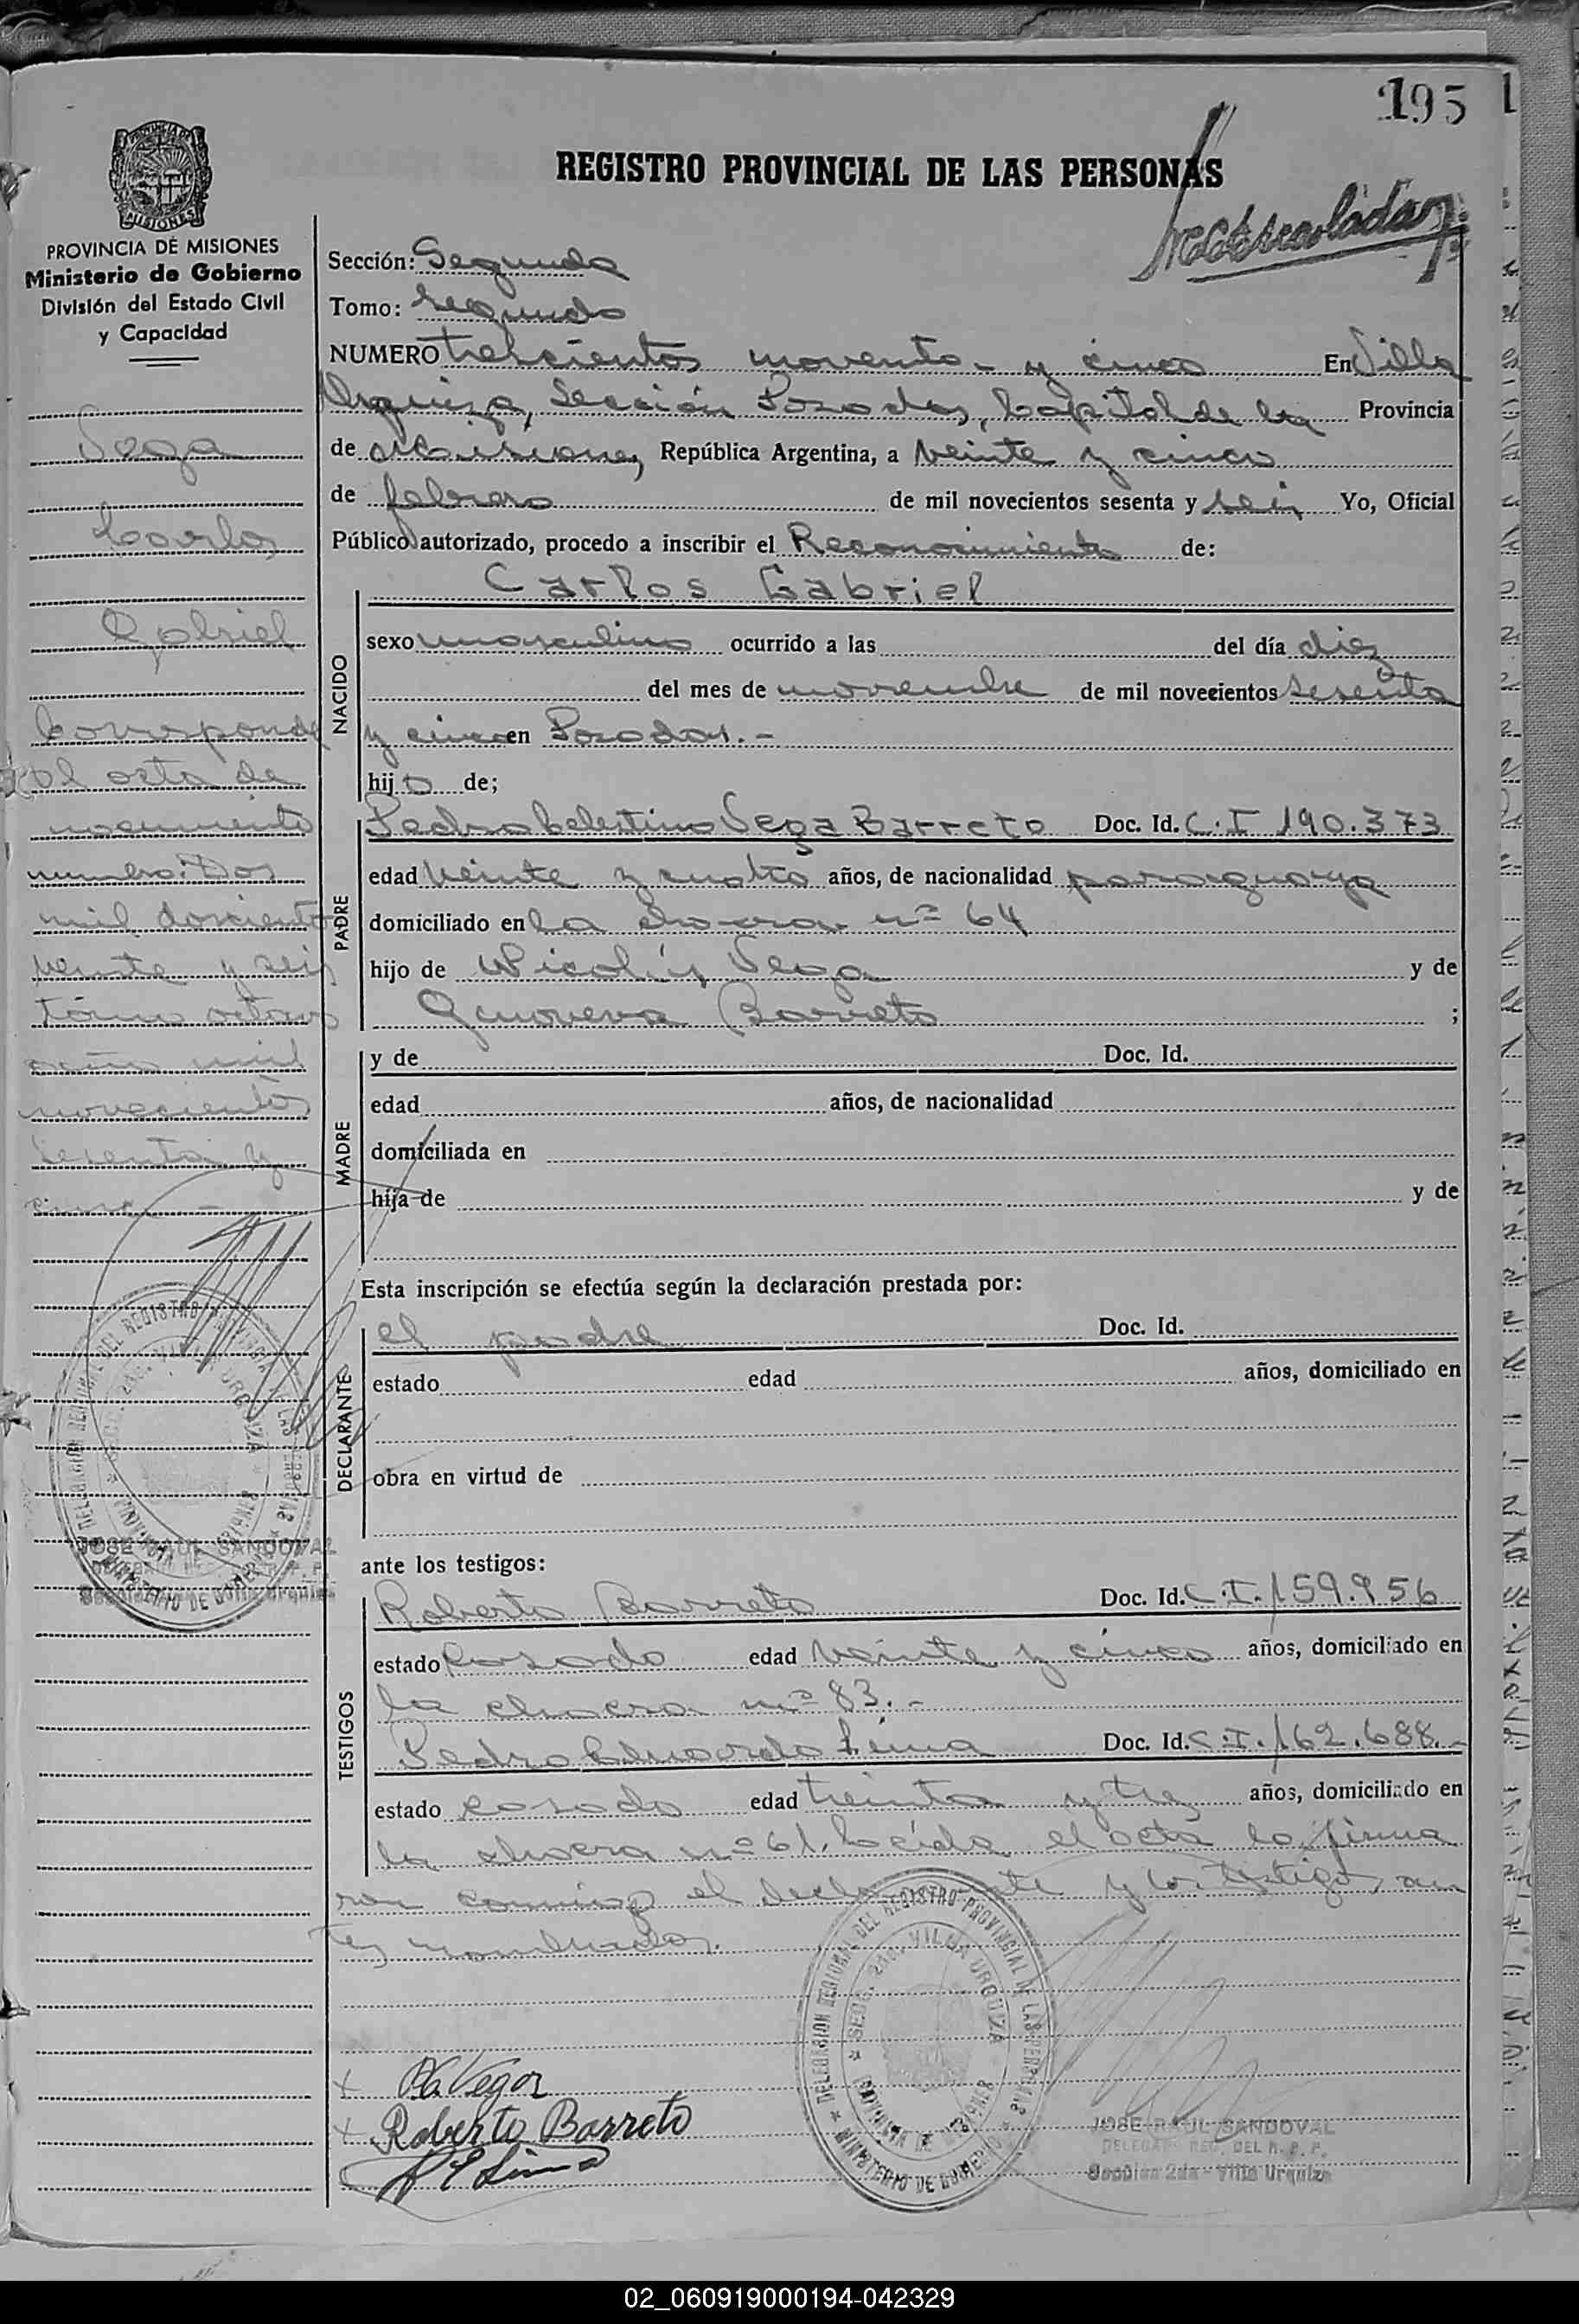 195
REGISTRO PROVINCIAL DE LAS PERSONAS
PROVINCIA DE MISIONES
Ministerio de Gobierno
División del Estado Civil
y Capacidad
Vega
Carlos
Gabriel
Corresponde
al acta de
nacimiento
numero: Dos
mil doscientos
veinte y seis
tómo octavo
año mil
novecientos
sesenta y
cinco.-
Sección: Segunda
Tomo: Segundo
NUMERO trescientos noventa y cinco En Villa
Urquiza, Sección Posadas, Capital de la Provincia
de Misiones, República Argentina, a veinte y cinco
de febrero de mil novecientos sesenta y seis Yo, Oficial
Público autorizado, procedo a inscribir el Reconocimiento de:
Carlos Gabriel
NACIDO
sexo masculino ocurrido a las del día diez
del mes de noviembre de mil novecientos sesenta
y cinco en Posadas.-
hijo de;
PADRE
Pedro Celestino Vega Barreto Doc. Id. C.I 190.373
edad veinte y cuatro años, de nacionalidad paraguaya
domiciliado en la chacra nº 64
hijo de Nicolás Vega y de
Genoveva Barreto ;
MADRE
y de Doc. Id.
edad años, de nacionalidad
domiciliada en
hija de y de
Esta inscripción se efectúa según la declaración prestada por:
DECLARANTE
el padre Doc. Id.
estado edad años, domiciliado en
obra en virtud de
ante los testigos:
TESTIGOS
Roberto Barreto Doc. Id. C.I. 159.956
estado casado edad veinte y cinco años, domiciliado en
la chacra nº 83.-
Pedro Eduardo Lima Doc. Id. C.I. 162.688.-
estado casado edad treinta y tres años, domiciliado en
la chacra nº 61. Leída el acta la firma
ron conmigo el declarante y los testigos an
tes nombrados.
P.C. Vega
Roberto Barreto
P E Lima
DELEGACION REGIONAL DEL REGISTRO PROVINCIAL DE LAS PERSONAS
SECC. 2da. VILLA URQUIZA
PROVINCIA DE MISIONES
MINISTERIO DE GOBIERNO
JOSE RAUL SANDOVAL
DELEGADO REG. DEL R. P. P.
Sección 2da - Villa Urquiza
02_060919000194-042329